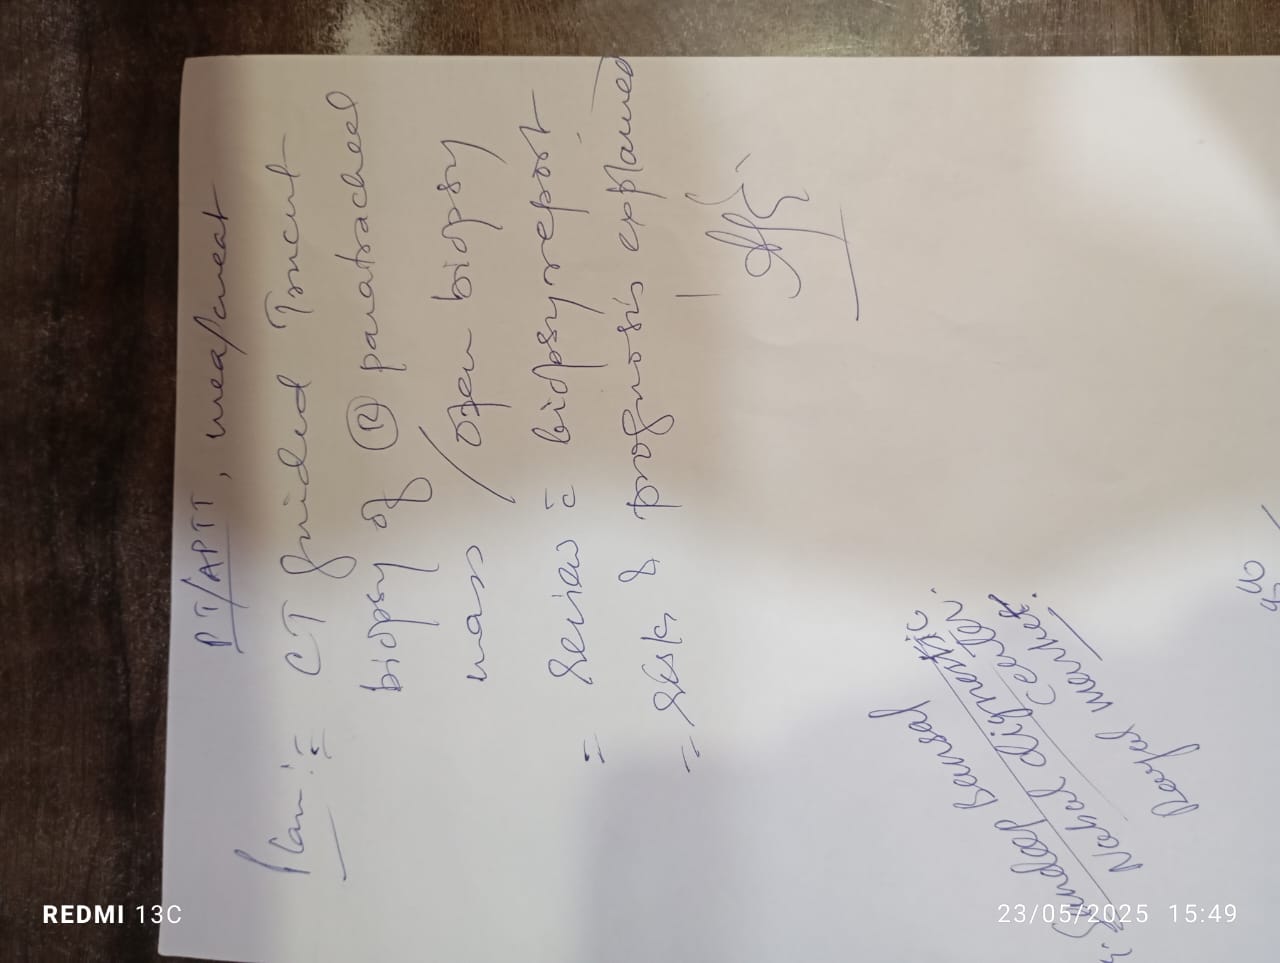 PT/APTT, urea/creat
Plan :- = CT guided Trucut
biopsy of (R) paratracheal
mass / open biopsy
= Review c̄ biopsy report
= Risk & prognosis explained
Sandeep Bansal
Nahal Dignostic
Center.
Market.
REDMI 13C
23/05/2025 15:49